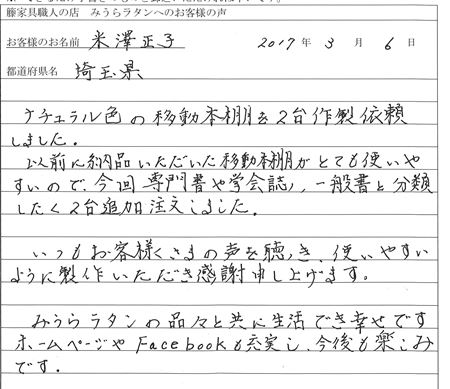 籐家具職人の店　みうらラタンへのお客様の声
お客様のお名前　米澤正子　2017年 3月 6日
都道府県名　埼玉県
ナチュラル色の移動本棚を2台作製依頼
しました。
以前に納品いただいた移動本棚がとても使いや
すいので、今回専門書や学会誌、一般書と分類
したく2台追加注文しました。
いつもお客様さまの声を聴き、使いやすい
ように製作いただき感謝申し上げます。
みうらラタンの品々と共に生活でき幸せです
ホームページやFacebookも充実し、今後も楽しみ
です。